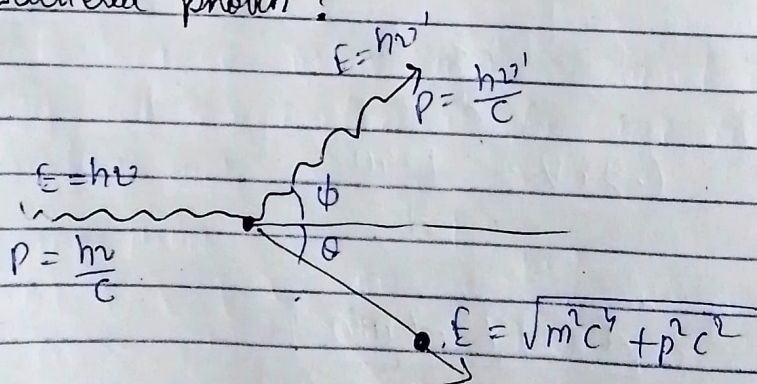 photon :
E = hν'
P = hν'/C
E = hν
ϕ
θ
P = hν/C
E = √m²c⁴ + p²c²